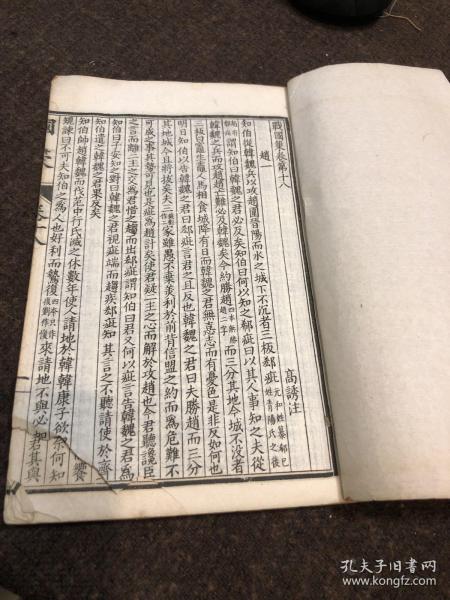 戰國策卷第十八
趙 高誘注
知伯從韓魏兵以攻趙圍晉陽而水之城下不沉者三板郄疵
謂知伯曰韓魏之君必反矣知伯曰何以知之郄疵曰以其人事知之夫從
韓魏之兵而攻趙趙亡難必及韓魏矣今約勝趙而三分其地今城不沒者
三板臼竈生鼃人馬相食城降有日而韓魏之君無憙志而有憂色是非反如何也
明日知伯以告韓魏之君曰郄疵言君之且反也韓魏之君曰夫勝趙而三分
其地城今且將拔矣夫二家雖愚不棄美利於前背信盟之約而爲危難不
可成之事其勢可見也是疵爲趙計矣使君疑二主之心而解於攻趙也今君聽讒臣
之言而離二主之交爲君惜之趨而出郄疵謂知伯曰君又何以疵言告韓魏之君爲
知伯曰子安知之對曰韓魏之君視疵端而趨疾郄疵知其言之不聽請使於齊
知伯遣之韓魏之君果反矣
知伯帥趙韓魏而伐范中行氏滅之休數年使人請地於韓韓康子欲
諫曰不可夫知伯之爲人也好利而鷙復來請地不與必
孔夫子旧书网
www.kongfz.com